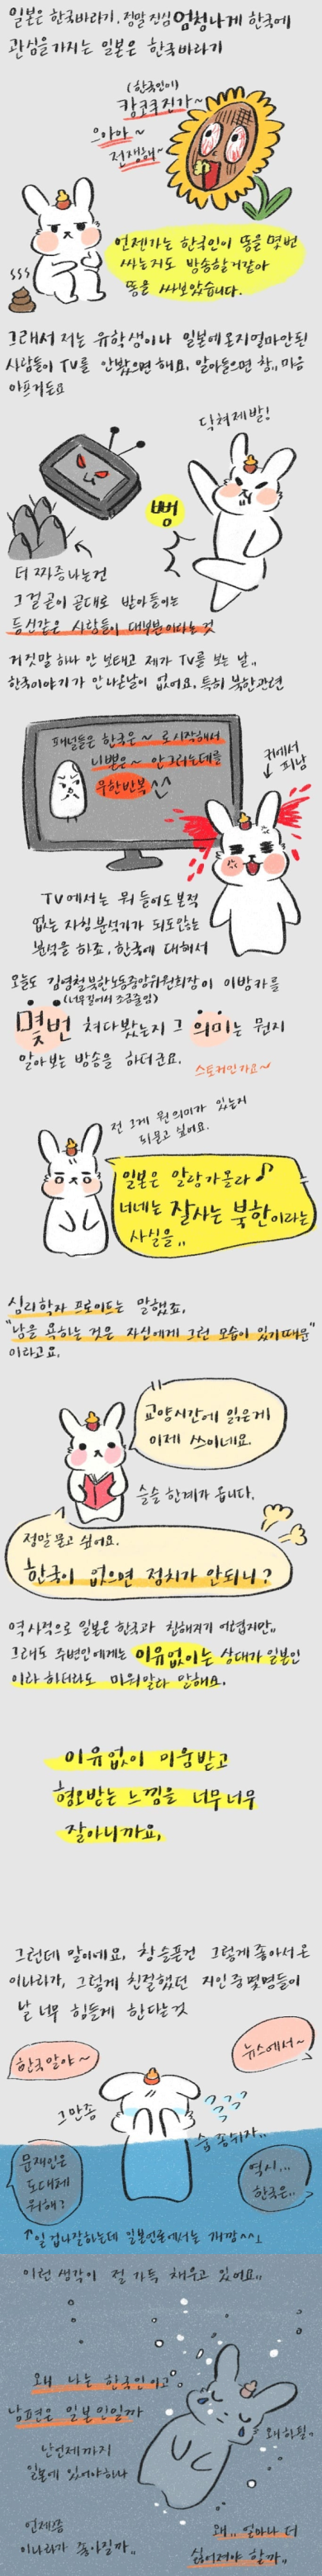 일본은 한국바라기. 정말 진심 엄청나게 한국에
관심을 가지는 일본은 한국바라기
(한국인이)
캉코쿠진가~
으아아~
전쟁해~
언젠가는 한국인이 똥을 몇번
싸는지도 방송할거같아
똥을 싸보았습니다.
그래서 저는 유학생이나 일본에 온지 얼마안된
사람들이 TV를 안봤으면 해요. 알아들으면 참,, 마음
아프거든요
닥쳐제발!
뻥
더 짜증나는건
그걸 곧이 곧대로 받아들이는
등신같은 사람들이 대부분이라는 것
거짓말 하나 안 보태고 제가 TV를 보는 날,,
한국이야기가 안 나온날이 없어요. 특히 북한관련
패널들은 한국은~ 로 시작해서
니뽄은~ 안그러는데를
무한반복^^
귀에서
피남
TV에서는 뭐 들어도 본적
없는 자칭 분석가가 되도않는
분석을 하죠. 한국에 대해서
오늘도 김영철 북한노동중앙위원회장이 이방카를
(너무길어서 조금줄임)
몇번 쳐다봤는지 그 의미는 뭔지
알아보는 방송을 하더군요.
스토커인가요~
전 그게 뭔 의미가 있는지
되묻고 싶어요.
일본은 알랑가몰라♪
너네는 잘사는 북한이라는
사실을,,
심리학자 프로이트는 말했죠.
"남을 욕하는 것은 자신에게 그런 모습이 있기 때문"
이라고요.
교양시간에 읽은게
이제 쓰이네요.
슬슬 한계가 옵니다.
정말 묻고 싶어요.
한국이 없으면 정치가 안되니?
역사적으로 일본은 한국과 친해지기 어렵지만,,
그래도 주변인에게는 이유없이는 상대가 일본인
이라 하더라도 미워말라 말해요.
이유없이 미움받고
혐오받는 느낌을 너무너무
잘아니까요,
그런데 말이에요, 참 슬픈건 그렇게 좋아서 온
이나라가, 그렇게 친절했던 지인중 몇명들이
날 너무 힘들게 한다는것
한국 말야~
뉴스에서~
그만좀
숨 좀 쉬자..
문재인은
도대체
뭐해?
역시...
한국은..
↑일 겁나잘하는데 일본언론에서는 개깜^^
이런 생각이 절 가득 채우고 있어요,,
왜 나는 한국인이고
남편은 일본인일까
왜하필,
난언제까지
일본에 있어야하나
언제쯤
이나라가 좋아질까..
왜.. 얼마나 더
싫어져야 할까..